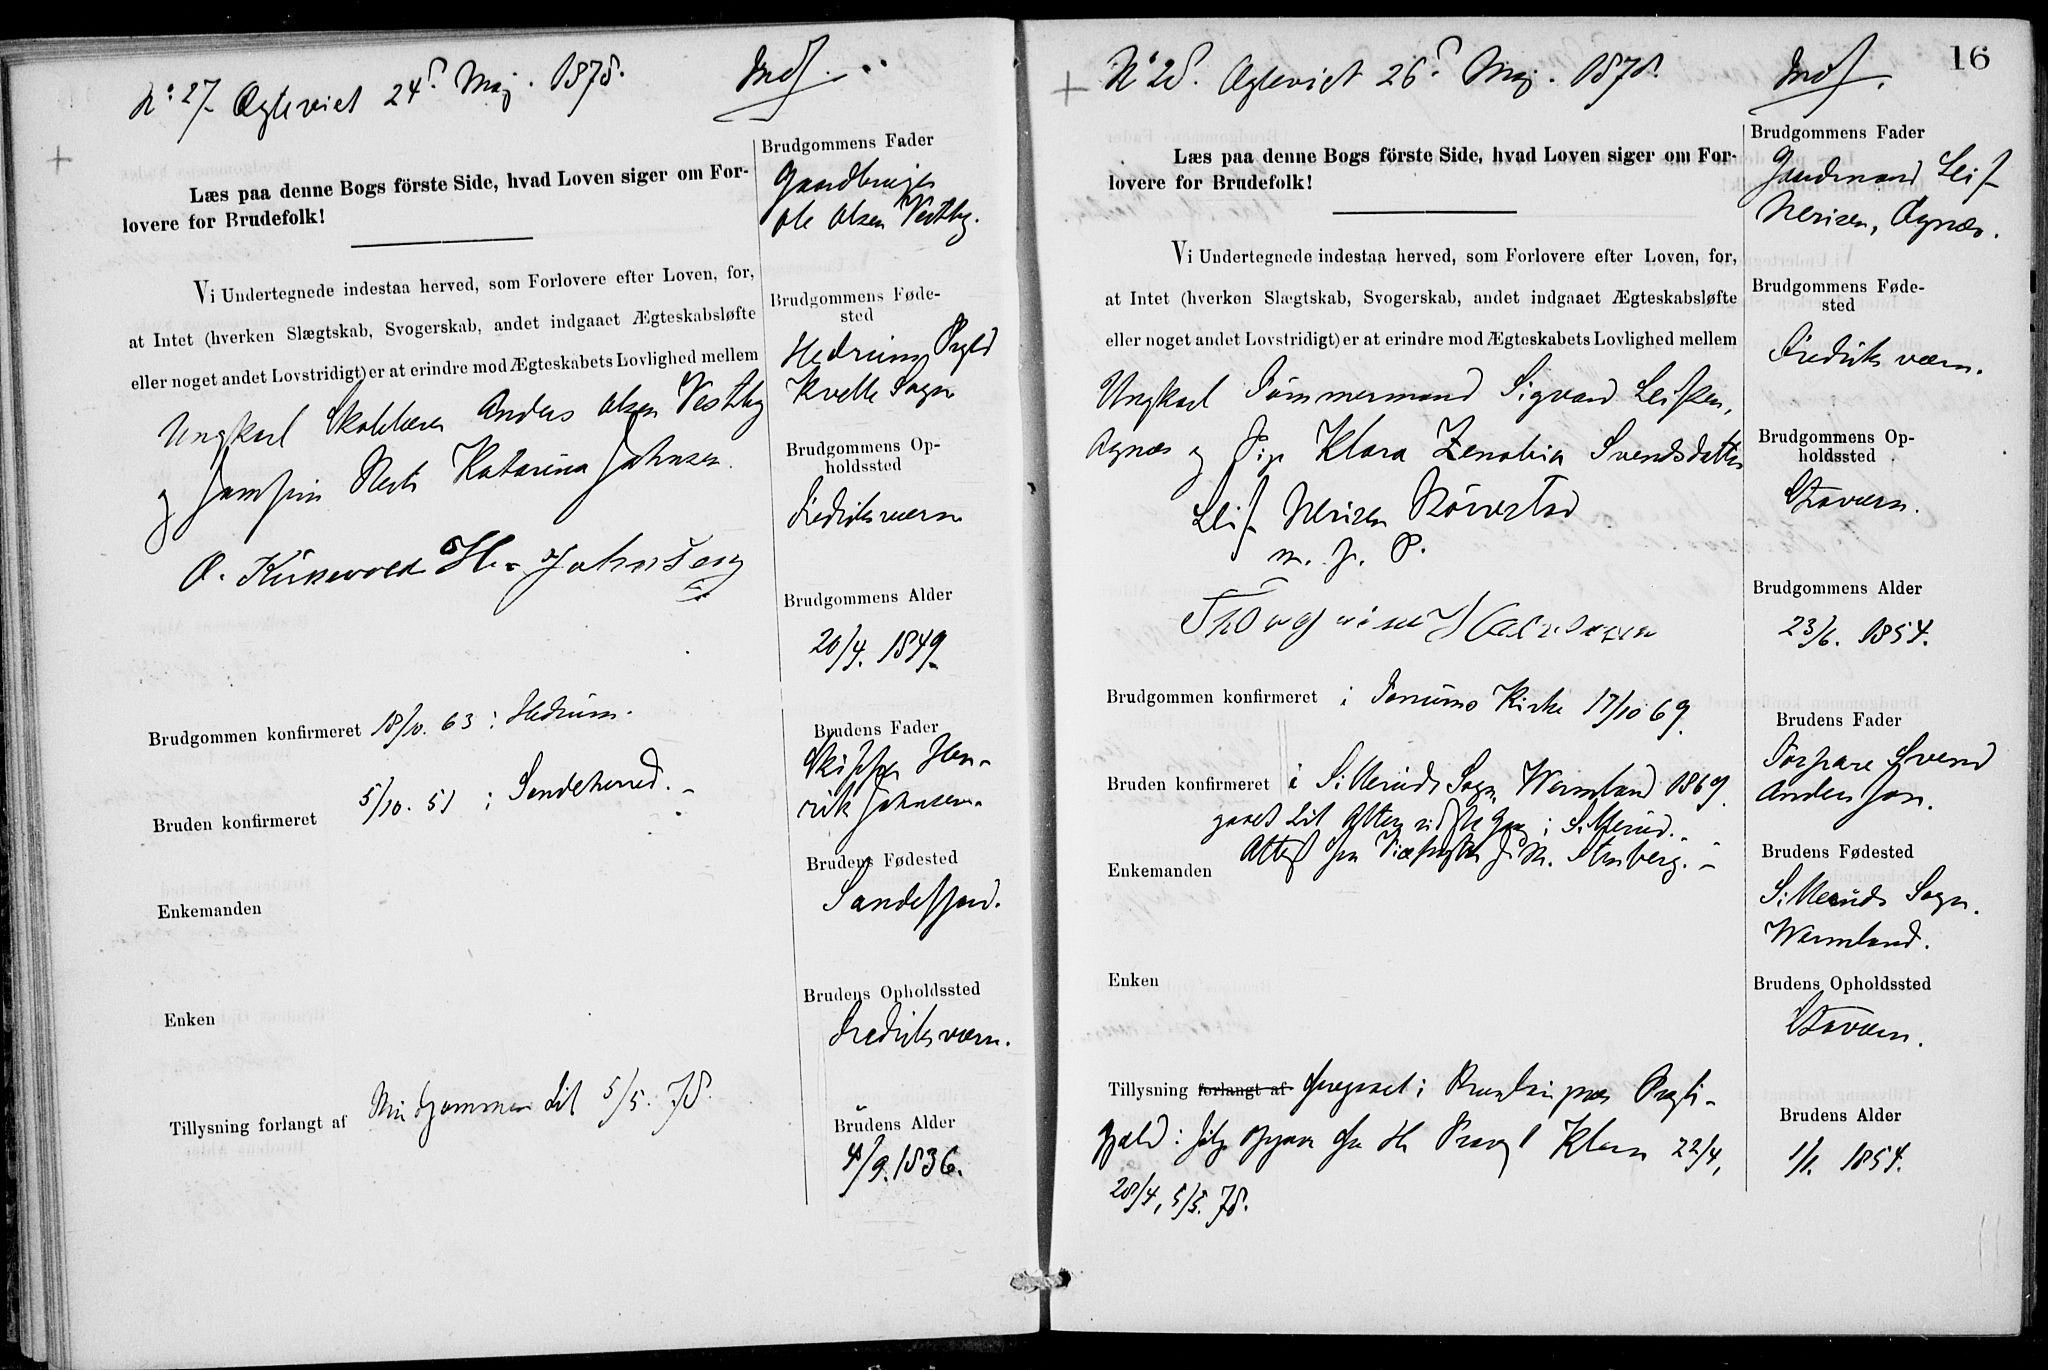 No 27. Ægteviet 24de Maj. 1878. Indf.
Læs paa denne Bogs förste Side, hvad Loven siger om For-
lovere for Brudefolk!
Vi Undertegnede indestaa herved, som Forlovere efter Loven, for,
at Intet (hverken Slægtskab, Svogerskab, andet indgaaet Ægteskabsløfte
eller noget andet Lovstridigt) er at erindre mod Ægteskabets Lovlighed mellem
Ungkarl Skolelærer Anders Olsen Vestby
og Jomfru Katarina Johnsen.
O. Kirkevold H. Johnsen
Brudgommen konfirmeret 18/10. 63 i Hedrum.
Bruden konfirmeret 5/10. 51 i Sandeherred.
Enkemanden
Enken
Tillysning forlangt af Brudgommen til 5/5. 78.
Brudgommens Fader
Gaardbruger
Ole Olsen Vestby.
Brudgommens Føde-
sted
Hedrum Prgld
Kvelle Sogn
Brudgommens Op-
holdssted
Fredriksværn
Brudgommens Alder
20/4. 1849
Brudens Fader
Skipper Hen-
rik Johnsen.
Brudens Fødested
Sandefjord.
Brudens Opholdssted
Fredriksværn.
Brudens Alder
4/9. 1836.
16
No 28. Ægteviet 26de Maj. 1878. Indf.
Læs paa denne Bogs förste Side, hvad Loven siger om For-
lovere for Brudefolk!
Vi Undertegnede indestaa herved, som Forlovere efter Loven, for,
at Intet (hverken Slægtskab, Svogerskab, andet indgaaet Ægteskabsløfte
eller noget andet Lovstridigt) er at erindre mod Ægteskabets Lovlighed mellem
Ungkarl Tømmermand Sigvard Leifsen,
Agnæs og Pige Klara Zenobia Svendsdatter
Leif Nerisen
m. f. P.
Brudgommen konfirmeret i Kirke 17/10 69.
Bruden konfirmeret i Silleruds Sogn, Wermland 1869.
i Sillerud.
Attest fra
Enkemanden
Enken
Tillysning forlangt af foregaaet i Brunlanæs Præste-
gjæld ifølge Opgave fra Hr Provst 22/4,
28/4, 5/5. 78.
Brudgommens Fader
Gaardmand Leif
Nerisen, Agnæs.
Brudgommens Føde-
sted
Fredriksværn.
Brudgommens Op-
holdssted
Stavern.
Brudgommens Alder
23/6. 1854.
Brudens Fader
Torpare Svend
Andersson.
Brudens Fødested
Silleruds Sogn.
Wermland.
Brudens Opholdssted
Stavern.
Brudens Alder
1/1. 1854.